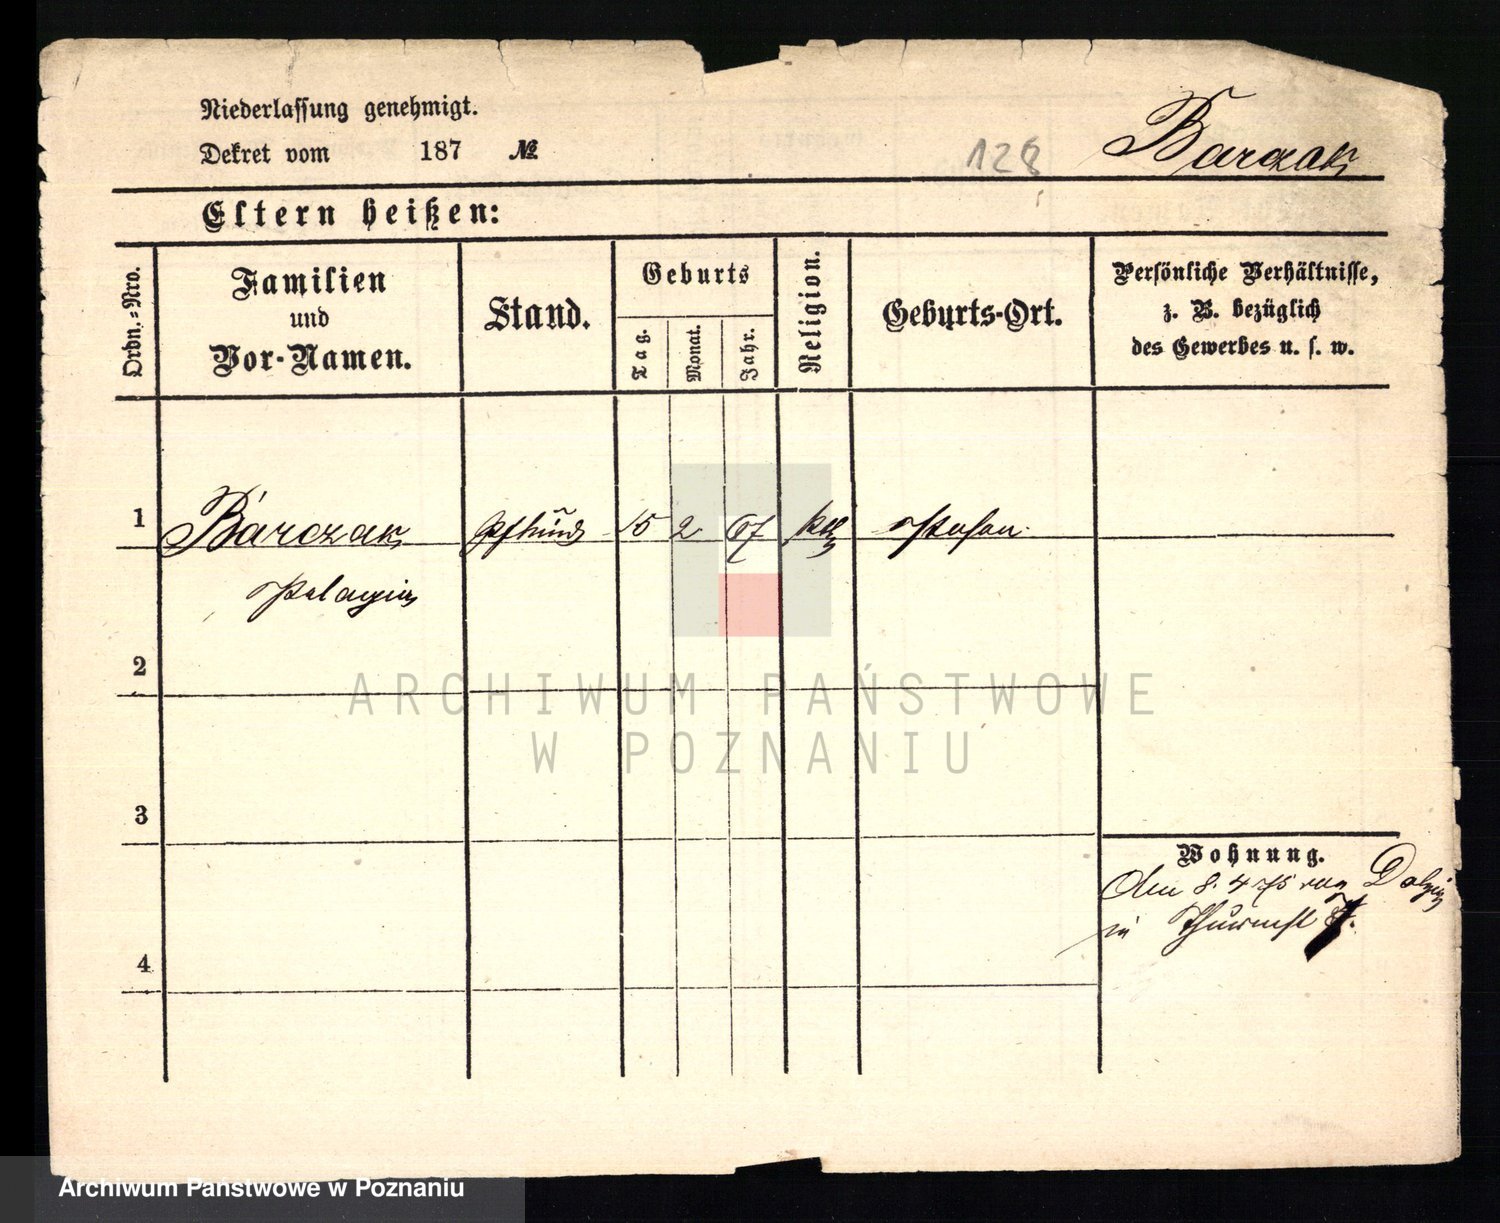 Niederlassung genehmigt.
Dekret vom 187 №
128
Barczak
Eltern heißen:
Ordn.=Nro.
Familien
und
Vor-Namen.
Stand.
Geburts
Tag.
Monat.
Jahr.
Religion.
Geburts-Ort.
Persönliche Verhältnisse,
z. B. bezüglich
des Gewerbes u. s. w.
1 Barczak 15 2 67 kth Posen.
Pelagia
2
3
4
Wohnung.
Am 8. 4 75
in Thurmst 7.
ARCHIWUM PAŃSTWOWE
W POZNANIU
Archiwum Państwowe w Poznaniu